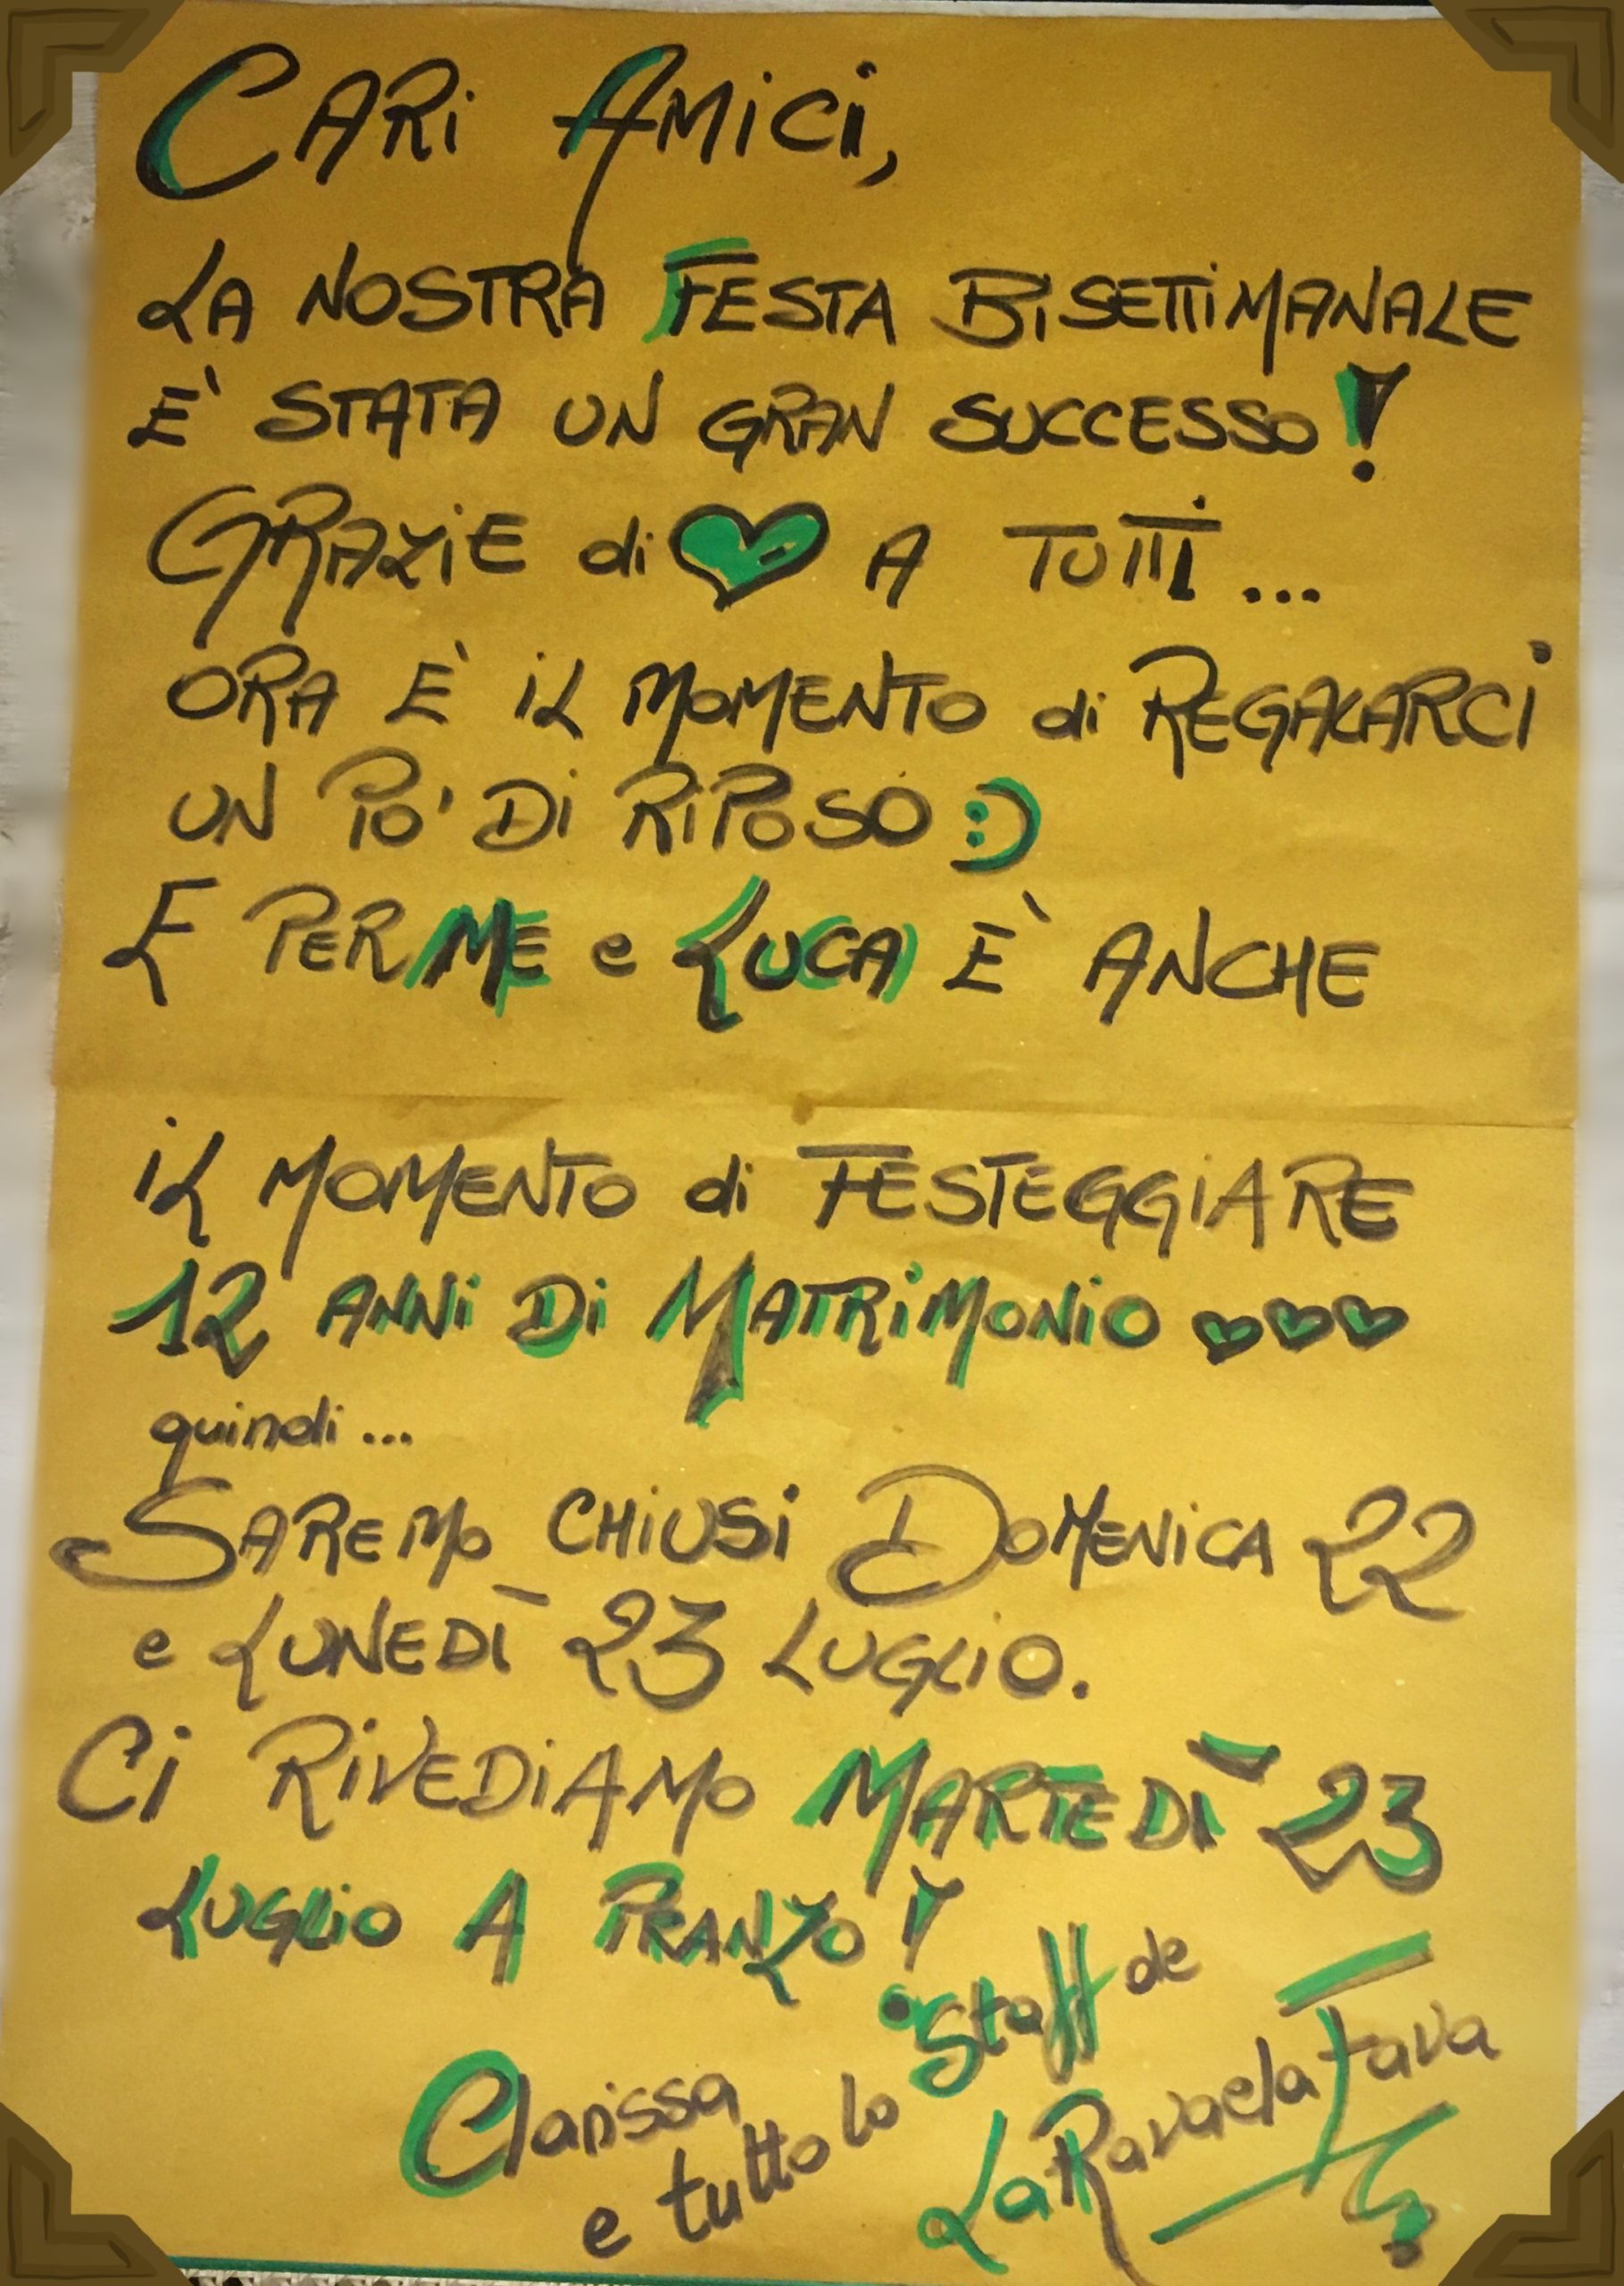 CARI AMICI,
LA NOSTRA FESTA BISETTIMANALE
E' STATA UN GRAN SUCCESSO!
GRAZIE di ♥ A TUTTI...
ORA E' IL MOMENTO di REGALARCI
UN PO' DI RIPOSO :)
E PER ME e LUCA E' ANCHE
IL MOMENTO di FESTEGGIARE
12 ANNI DI MATRIMONIO ♥♥♥
quindi...
SAREMO CHIUSI DOMENICA 22
e LUNEDÌ 23 LUGLIO.
CI RIVEDIAMO MARTEDÌ 23
LUGLIO A PRANZO!
Clarissa
e tutto lo staff de
La Rava e la Fava